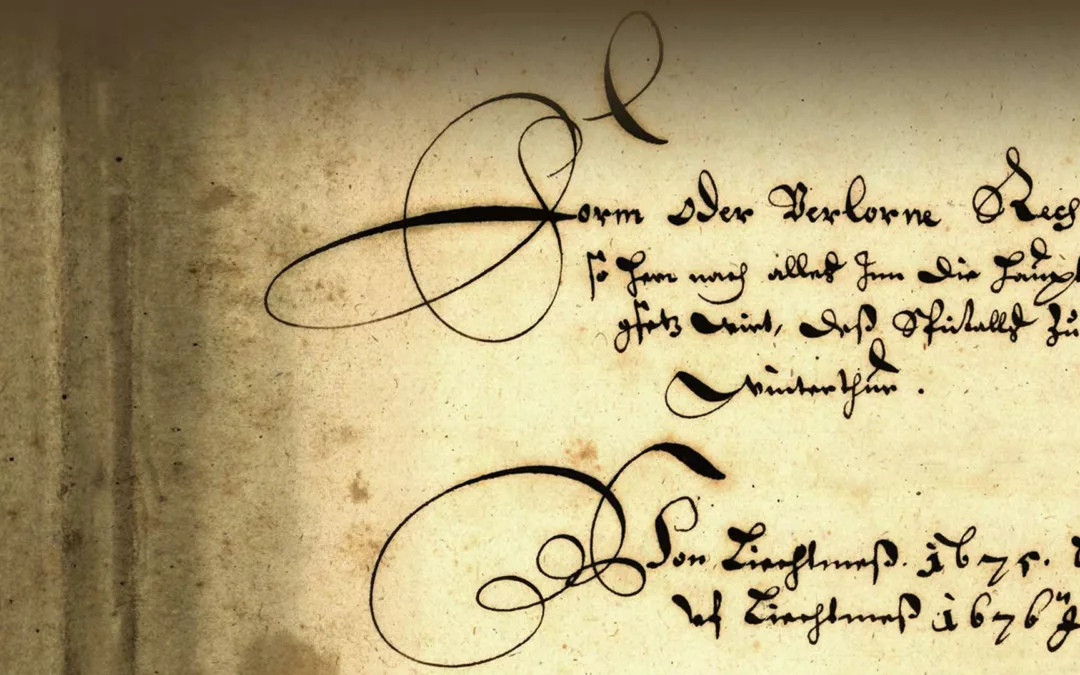 Form oder Verlorne Rech
so hern nach alles Inn die Haupt
gsetz wirt, deß Spitalls zu
Winterthur.
Von Liechtmeß. 1675.
vf Liechtmeß 1676